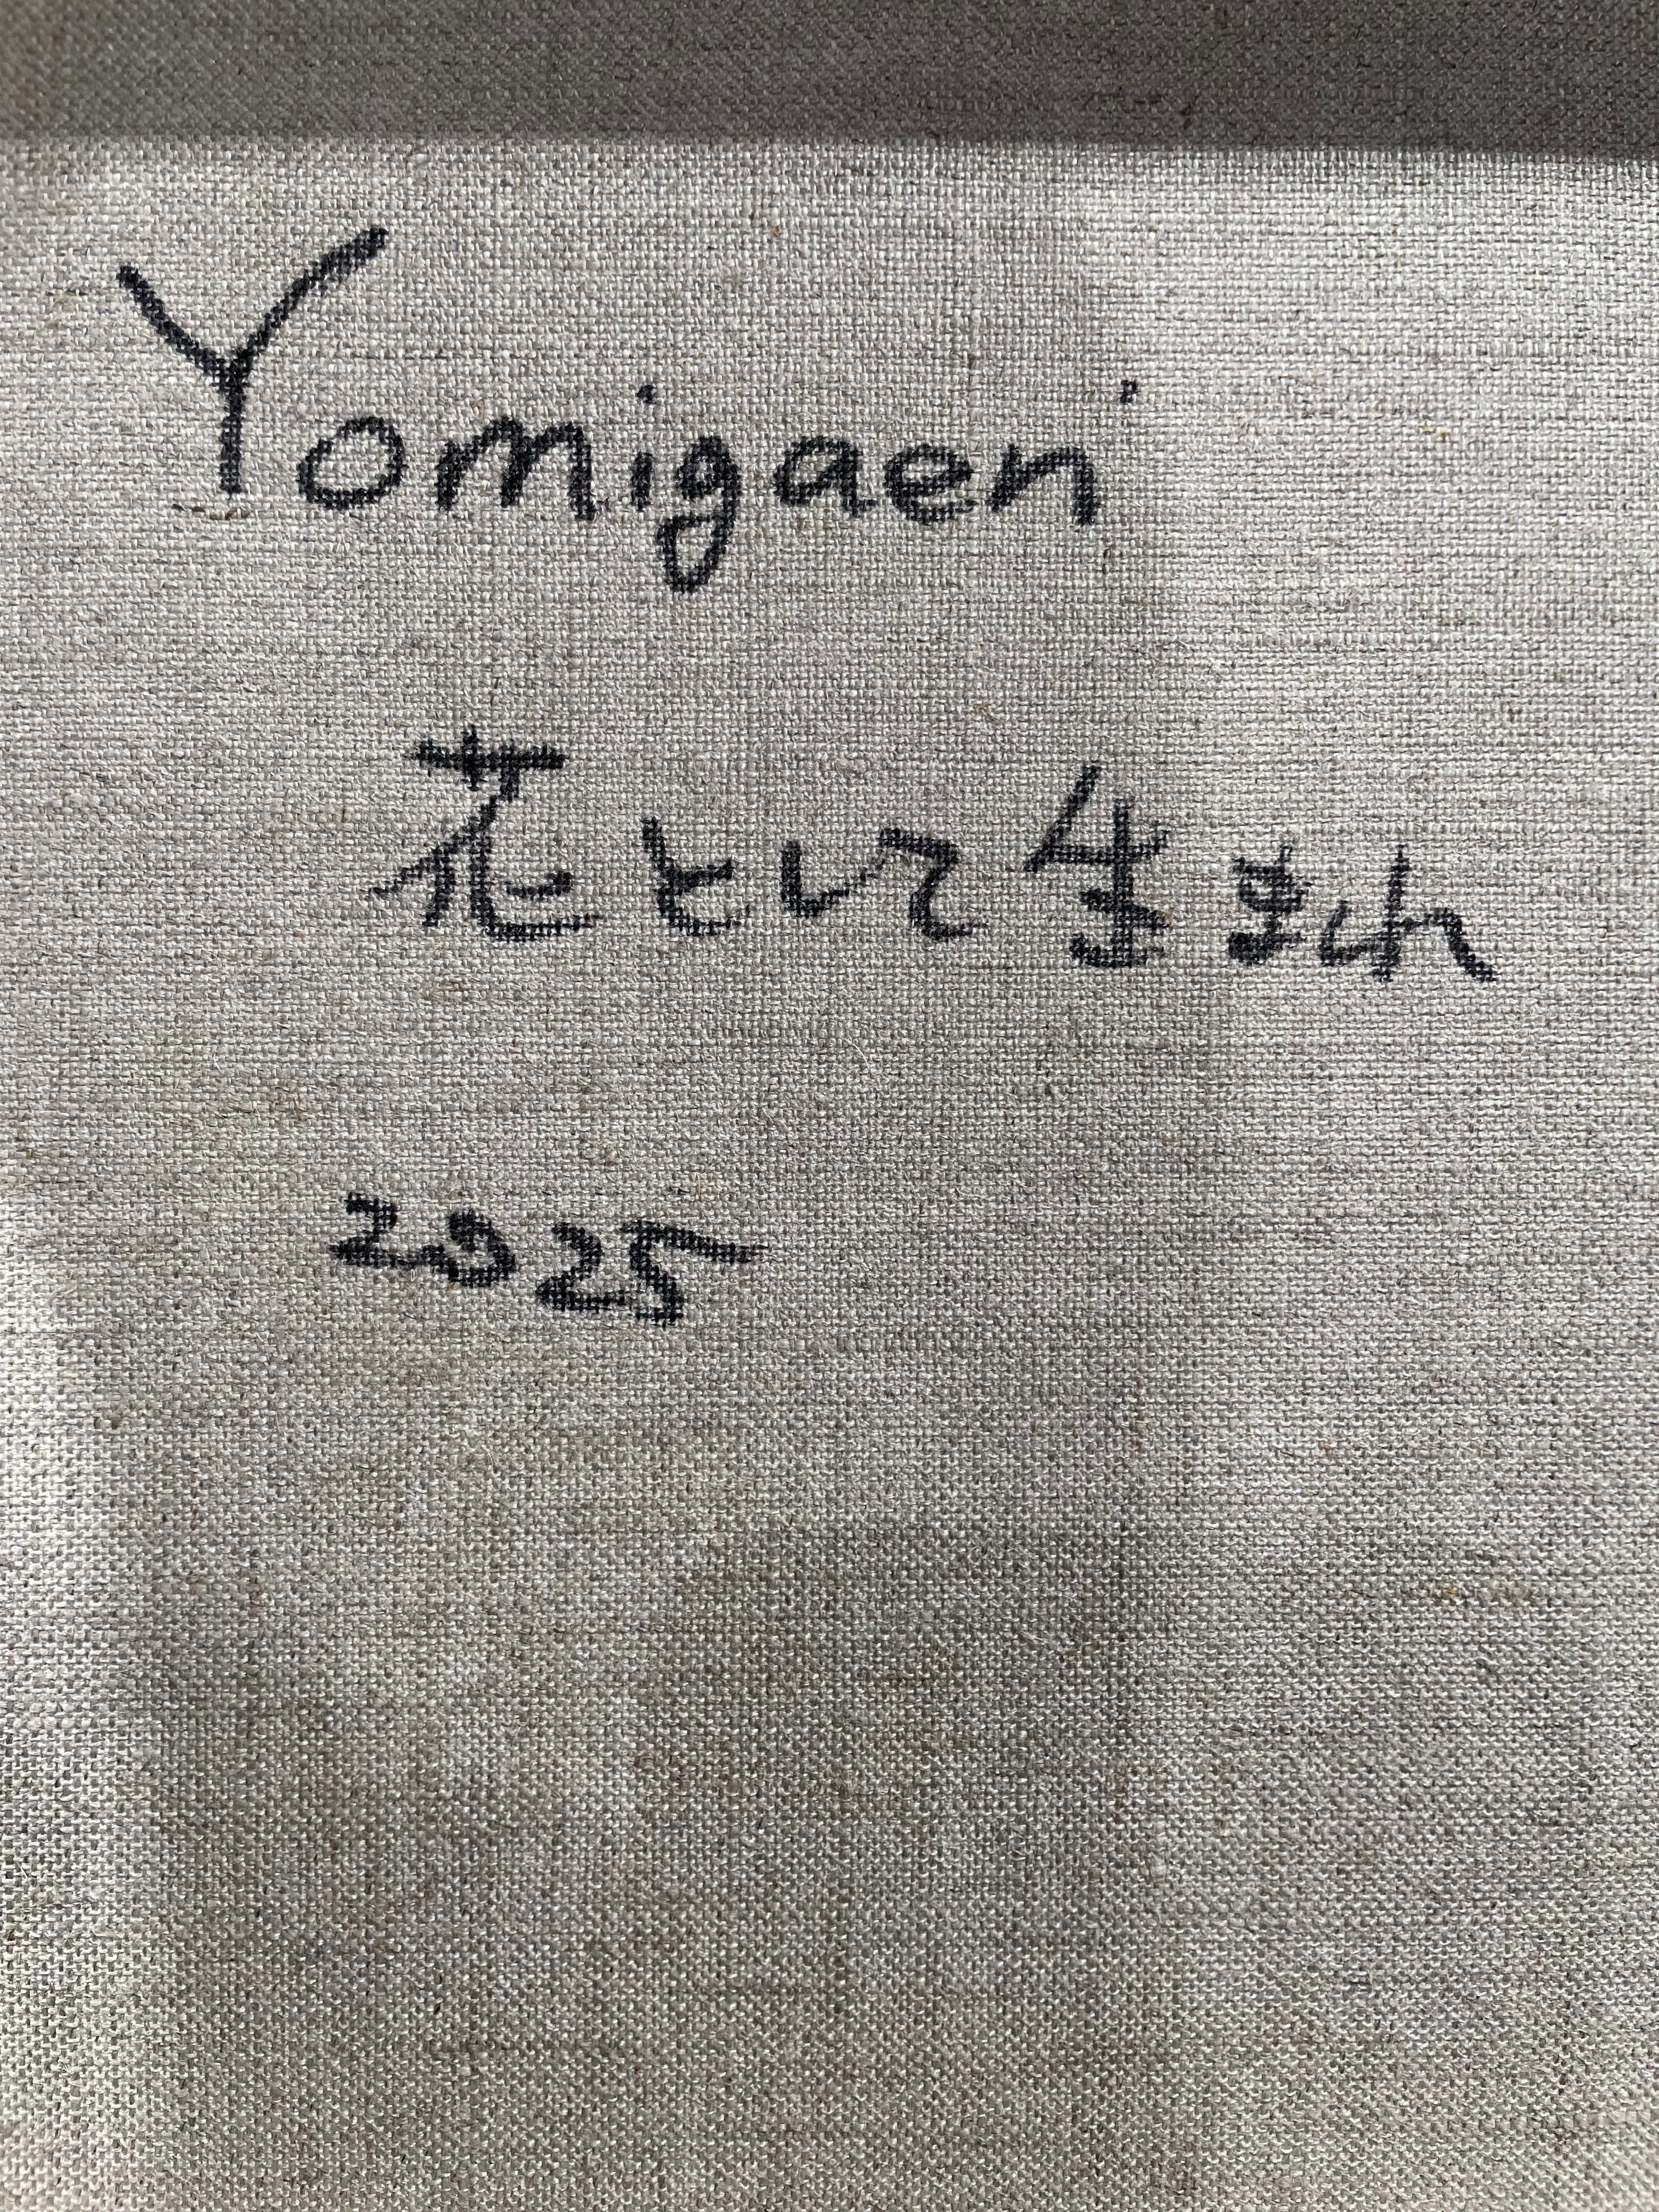 Yomigaeri
花として生まれ
2025